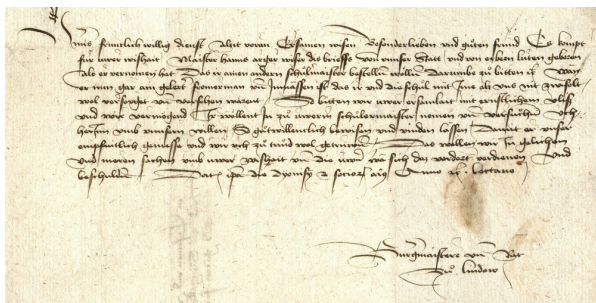 Unser früntlich willig dienst Alzit voran Ersamen wisen Besonderlieben und guten fründ Es kompt
für uwer wishait Maister hanns wiser des brieffs von unser Statt und von erbern luten geboren
Als er vernomen hat Das ir ainen andern schulmaister bestellen wellen Darumbe zu bitten Wan
er nun gar am gelert man ist das ir und die schul mit Ime als uns nit zwifelt
wol versorget und versehen Bitten wir uwer ersamkait mit ernstlichem vliss
und wir vermogend Ir wellent In zu uwerm schulermaister nemen und versuchen Och
herinn umb unsern willen So gutwillenclich bewisen und vinden lassen Damit er unser
empfintlich geniesse und wir uch zu tund wol getruwen Das wellen wir In gelichem
und meren sachen umb uwer wishait und die uwern wa sich das verdienen Und
beschulden Dat ipa die Dyonisy Anno
Burgermaistere und Rat
Zu lindow